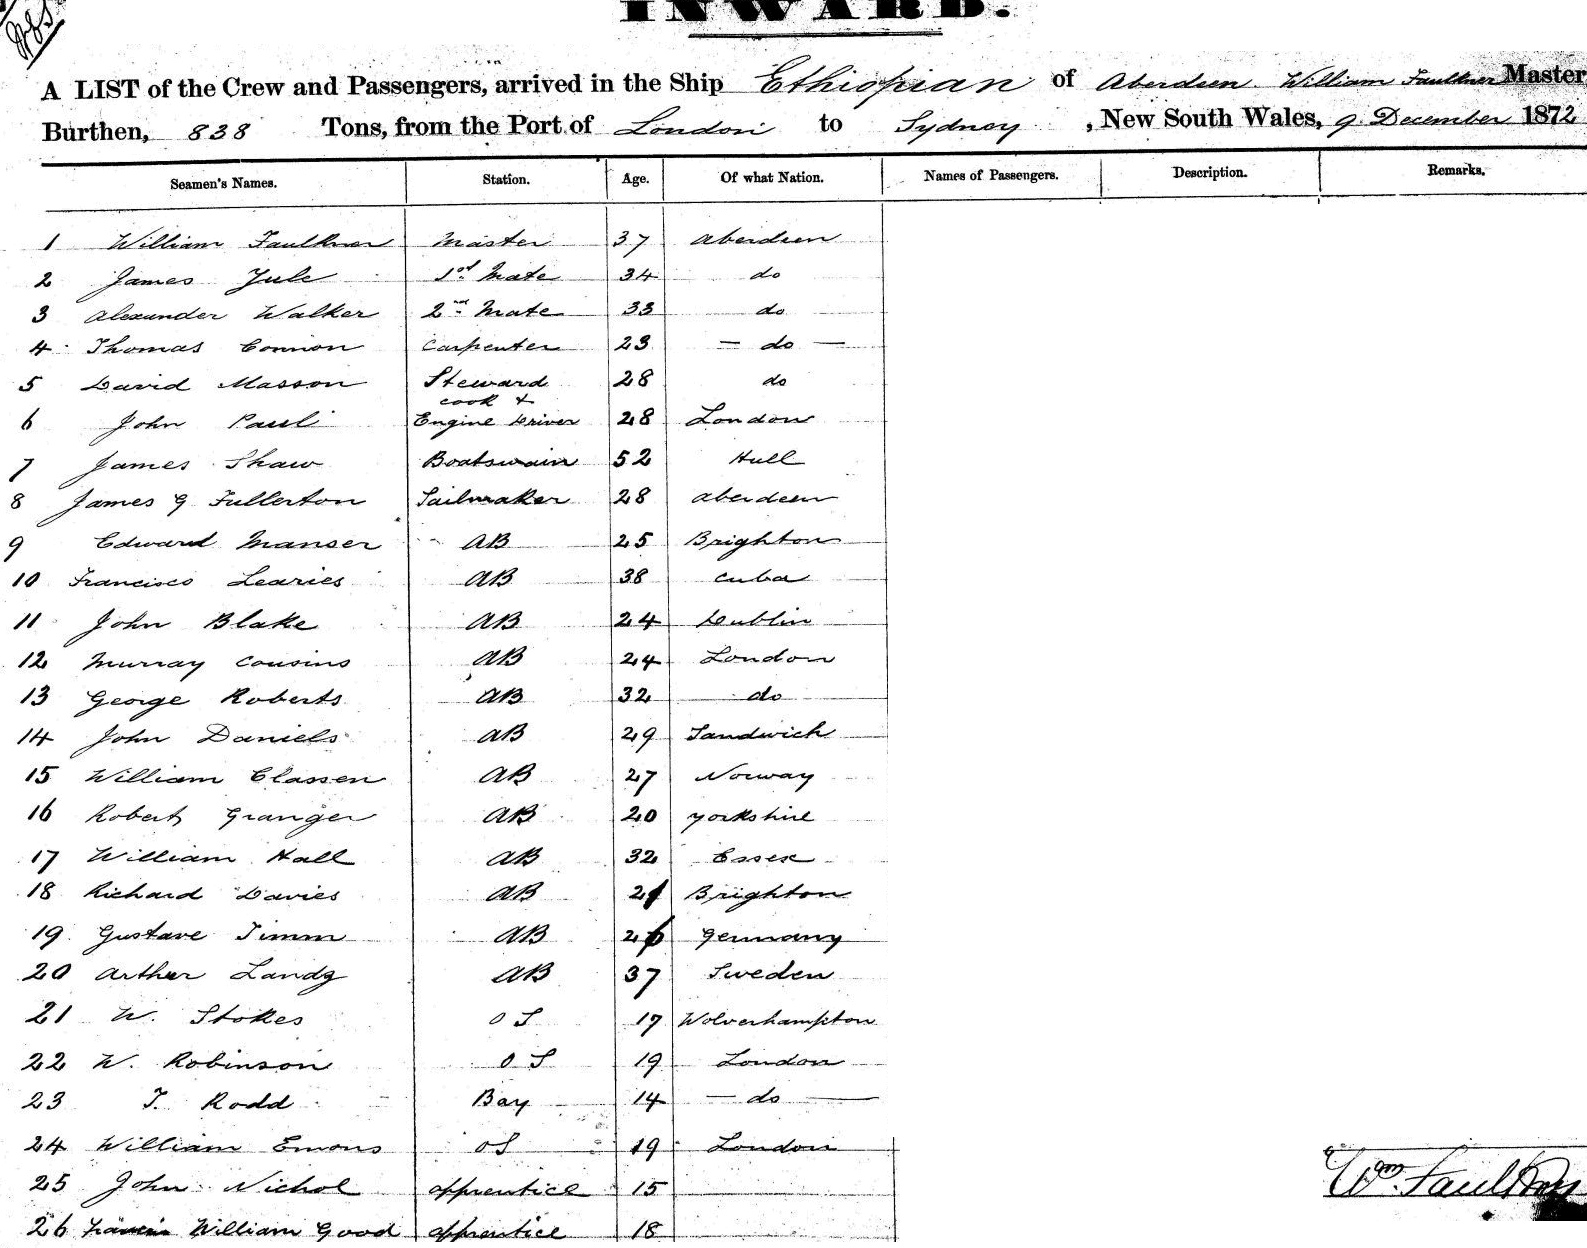 INWARD.
A LIST of the Crew and Passengers, arrived in the Ship Ethiopian of Aberdeen William Faulkner Master
Burthen, 838 Tons, from the Port of London to Sydney, New South Wales, 9 December 1872
Seamen's Names. Station. Age. Of what Nation. Names of Passengers. Description. Remarks.
1 William Faulkner Master 37 Aberdeen
2 James Yule 1st Mate 34 do
3 Alexander Walker 2nd Mate 33 do
4 Thomas Connon Carpenter 23 — do —
5 David Masson Steward 28 do
cook &
6 John Paul Engine Driver 28 London
7 James Shaw Boatswain 52 Hull
8 James G Fullerton Sailmaker 28 Aberdeen
9 Edward Manser AB 25 Brighton
10 Francisco Learies AB 38 Cuba
11 John Blake AB 24 Dublin
12 Murray Cousins AB 24 London
13 George Roberts AB 32 do
14 John Daniels AB 29 Sandwich
15 William Classen AB 27 Norway
16 Robert Granger AB 20 Yorkshire
17 William Hall AB 32 Essex
18 Richard Davies AB 21 Brighton
19 Gustave Timm AB 26 Germany
20 Arthur Landg AB 37 Sweden
21 W. Stokes OS 17 Wolverhampton
22 W. Robinson OS 19 London
23 T. Rodd Boy 14 — do —
24 William Emons OS 19 London
25 John Nichol apprentice 15
Wm. Faulkner
26 Francis William Good apprentice 18